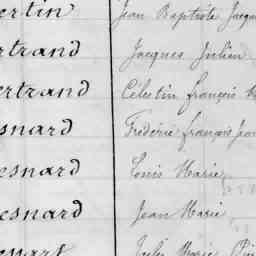 ertin Jean Baptiste Jacqu
rtrand Jacques Julien
ertrand Célestin françois
snard Frédéric françois Jean
esnard Louis Marie
esnard Jean Marie
Jules Marie